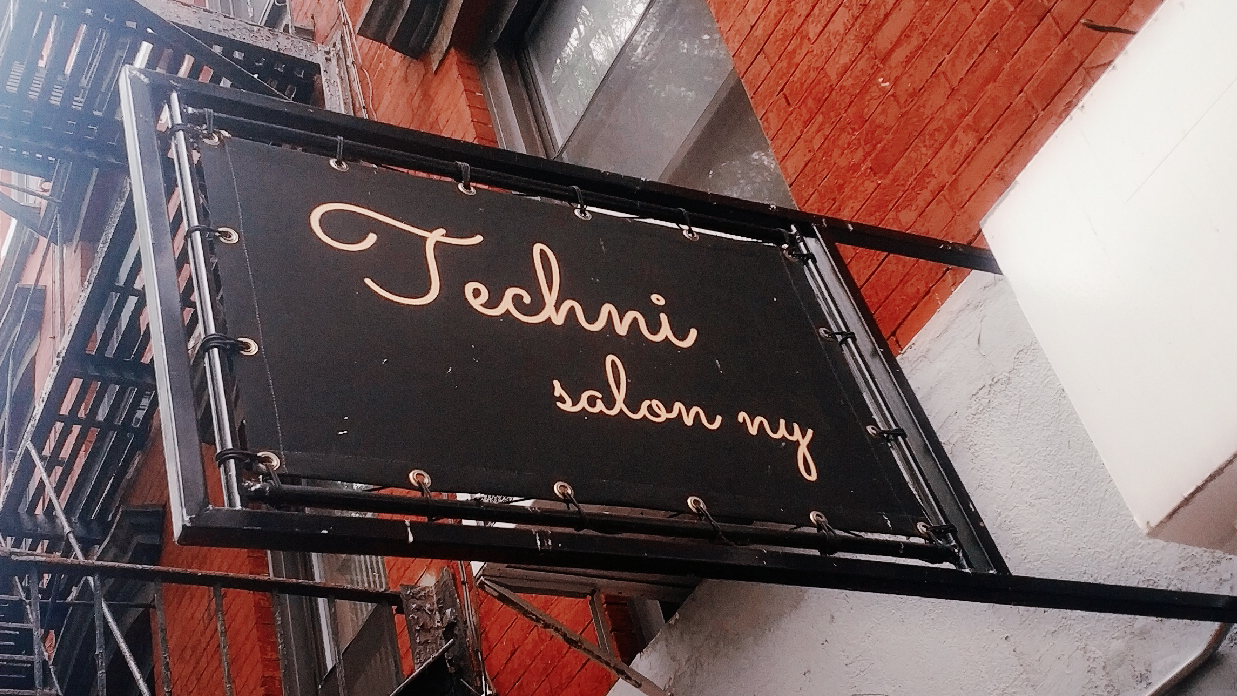 Techni
salon ny